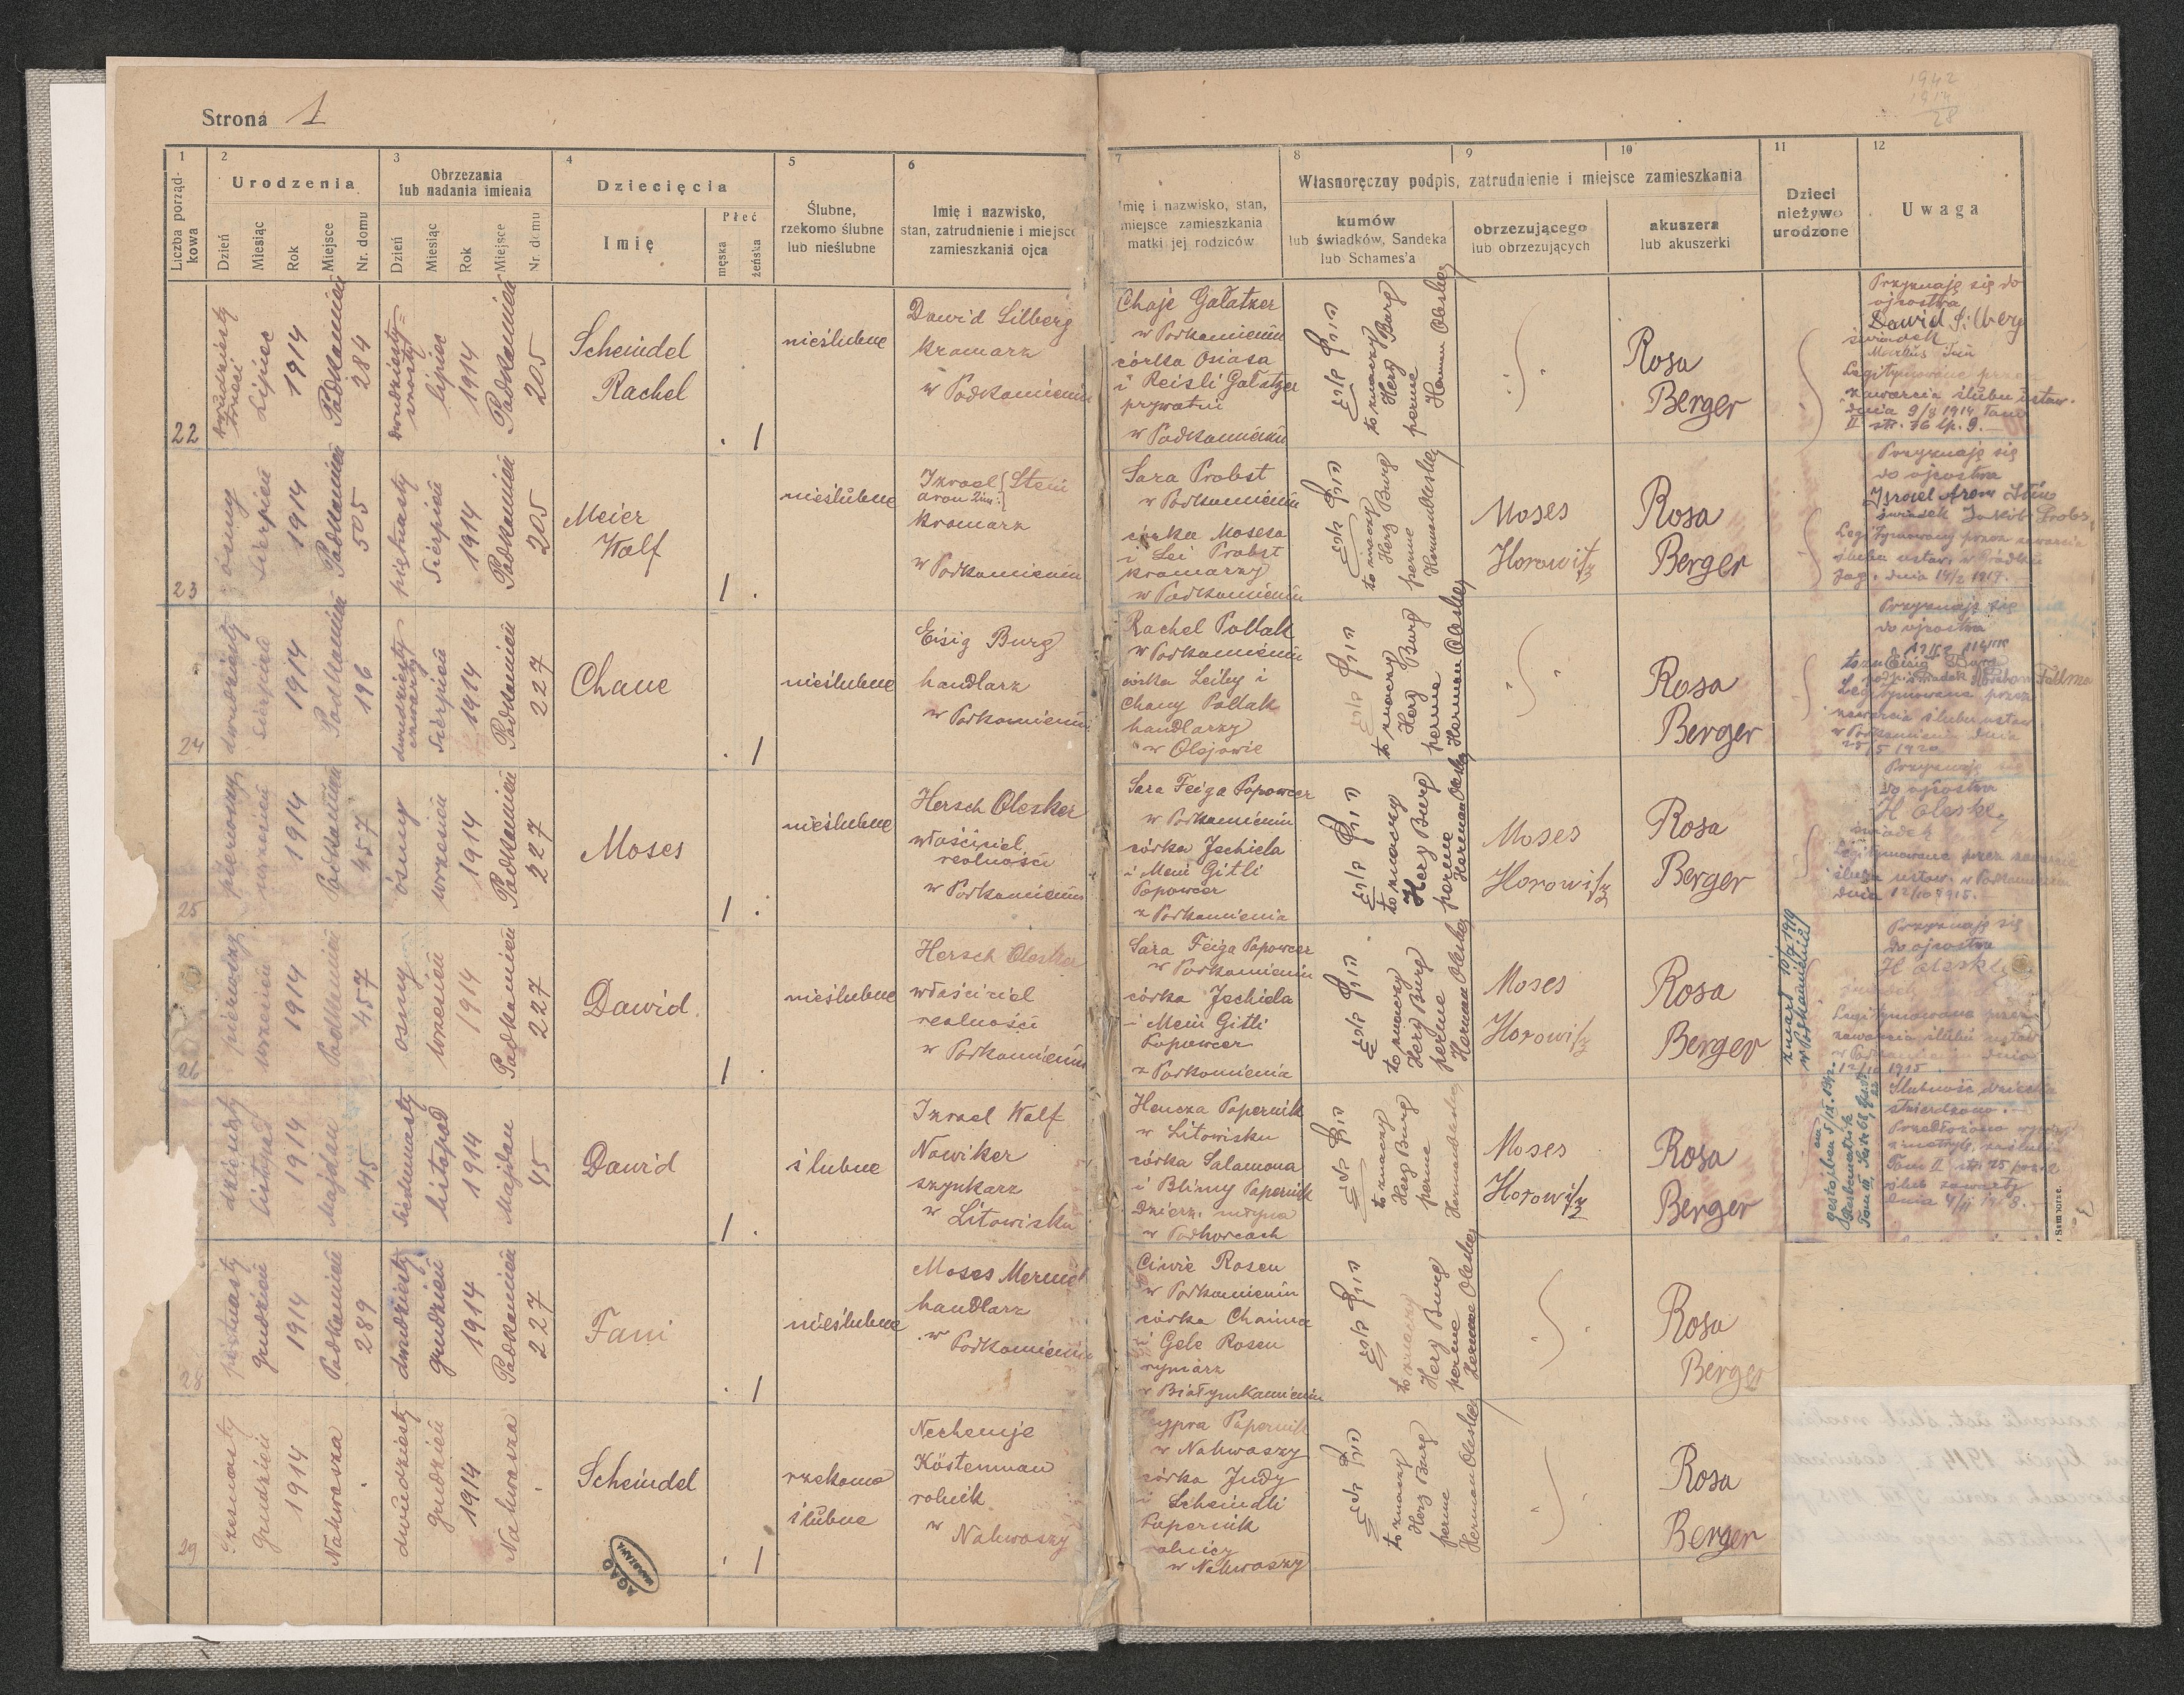 Strona 1
1942
1914
28
1
2
3
4
5
6
7
8
9
10
11
12
Liczba porząd-
kowa
Urodzenia
Dzień
Miesiąc
Rok
Miejsce
Nr. domu
Obrzezania
lub nadania imienia
Dzień
Miesiąc
Rok
Miejsce
Nr. domu
Dziecięcia
Imię
Płeć
męska
żeńska
Ślubne,
rzekomo ślubne
lub nieślubne
Imię i nazwisko,
stan, zatrudnienie i miejsce
zamieszkania ojca
Imię i nazwisko, stan,
miejsce zamieszkania
matki jej rodziców
Własnoręczny podpis, zatrudnienie i miejsce zamieszkania
kumów
lub świadków, Sandeka
lub Schames'a
obrzezującego
lub obrzezujących
akuszera
lub akuszerki
Dzieci
nieżywo
urodzone
Uwaga
22
dwudziesty
trzeci
Lipiec
1914
Podkamień
284
dwudziesty
szósty
lipiec
1914
Podkamień
205
Scheindel
Rachel
. 1
nieślubne
Dawid Silberg
kramarz
w Podkamieniu
Chaje Gałatzer
w Podkamieniu
córka Osiasa
i Reisli Gałatzer
prywatni
w Podkamieniu
to znaczy
Herz Burg
perme
Herman Olesker
Rosa
Berger
Przyznaję się do
ojcostwa
Dawid Silberg
świadek
Legitymowane przez
zawarcia ślubu ustaw.
dnia 9/8 1914 Tom
II str. 76 lp. 9.
23
ósmy
Sierpień
1914
Podkamień
505
piętnasty
Sierpień
1914
Podkamień
205
Meier
Wolf
1 .
nieślubne
Izrael Stein
Aron 2im.
kramarz
w Podkamieniu
Sara Probst
w Podkamieniu
córka Mosesa
i Lei Probst
kramarzy
w Podkamieniu
to znaczy
Herz Burg
perme
Herman Olesker
Moses
Horowitz
Rosa
Berger
Przyznaję się
do ojcostwa
Izrael Aron Stein
świadek Jakób Probst
Legitymowany przez zawarcia
ślubu ustaw. w
dnia 14/2 1917.
24
dwudziesty
sierpień
1914
Podkamień
196
dwudziesty
czwarty
Sierpień
1914
Podkamień
227
Chane
. 1
nieślubne
Eisig Burg
handlarz
w Podkamieniu
Rachel Pollak
w Podkamieniu
córka Leiby i
Chany Pollak
handlarzy
w Olejowie
to znaczy
Herz Burg
perme
Herman Olesker
Rosa
Berger
Przyznaję się
do ojcostwa
to zn. Eisig Burg
Legitymowane przez
zawarcia ślubu ustaw
w Podkamieniu dnia
25/5 1920
25
pierwszy
wrzesień
1914
Podkamień
457
ósmy
wrzesień
1914
Podkamień
227
Moses
1 .
nieślubne
Hersch Olesker
właściciel
realności
w Podkamieniu
Sara Feiga Popowcer
w Podkamieniu
córka Jechiela
i Meni Gitli
Popowcer
z Podkamienia
to znaczy
Herz Burg
perme
Herman Olesker
Moses
Horowitz
Rosa
Berger
Przyznaję się
do ojcostwa
H Olesker
świadek
Legitymowane przez zawarcie
ślubu ustaw. w Podkamieniu
dnia 12/10 1915.
26
pierwszy
wrzesień
1914
Podkamień
457
ósmy
wrzesień
1914
Podkamień
227
Dawid
1 .
nieślubne
Hersch Olesker
właściciel
realności
w Podkamieniu
Sara Feiga Popowcer
w Podkamieniu
córka Jechiela
i Meni Gitli
Popowcer
z Podkamienia
to znaczy
Herz Burg
perme
Herman Olesker
Moses
Horowitz
Rosa
Berger
zmarł
w Podkamieniu
Przyznaję się
do ojcostwa
H Olesker
świadek
Legitymowane przez
zawarcia ślubu ustaw
w Podkamieniu dnia
12/10 1915
dziewiąty
listopad
1914
Majdan
45
Siedemnasty
listopad
1914
Majdan
45
Dawid
1 .
ślubne
Izrael Wolf
Nowiker
szynkarz
w Litowisku
Hencza Papernik
w Litowisku
córka Salamona
i Blimy Papernik
dzierż. młyna
w Podhorcach
to znaczy
Herz Burg
perme
Herman Olesker
Moses
Horowitz
Rosa
Berger
gestorben am
Ślubność dziecka
stwierdzono.
Przedłożono
Tom II str. 25 poz. 2
ślub zawarty
28
piętnasty
grudzień
1914
Podkamień
289
dwudziesty
grudzień
1914
Podkamień
227
Fani
. 1
nieślubne
Moses
handlarz
w Podkamieniu
Ciwie Rosen
w Podkamieniu
córka Chaima
i Gele Rosen
rymarz
w Białymkamieniu
to znaczy
Herz Burg
perme
Herman Olesker
Rosa
Berger
29
Szesnasty
Grudzień
1914
Nakwasza
.
dwudziesty
grudzień
1914
Nakwasza
.
Scheindel
. 1
rzekomo
ślubne
Nechemje
Köstenman
rolnik
w Nakwaszy
Cypra Papernik
w Nakwaszy
córka Judy
i Scheindli
Papernik
rolnicy
w Nakwaszy
to znaczy
Herz Burg
perme
Herman Olesker
Rosa
Berger
AGAD
WARSZAWA